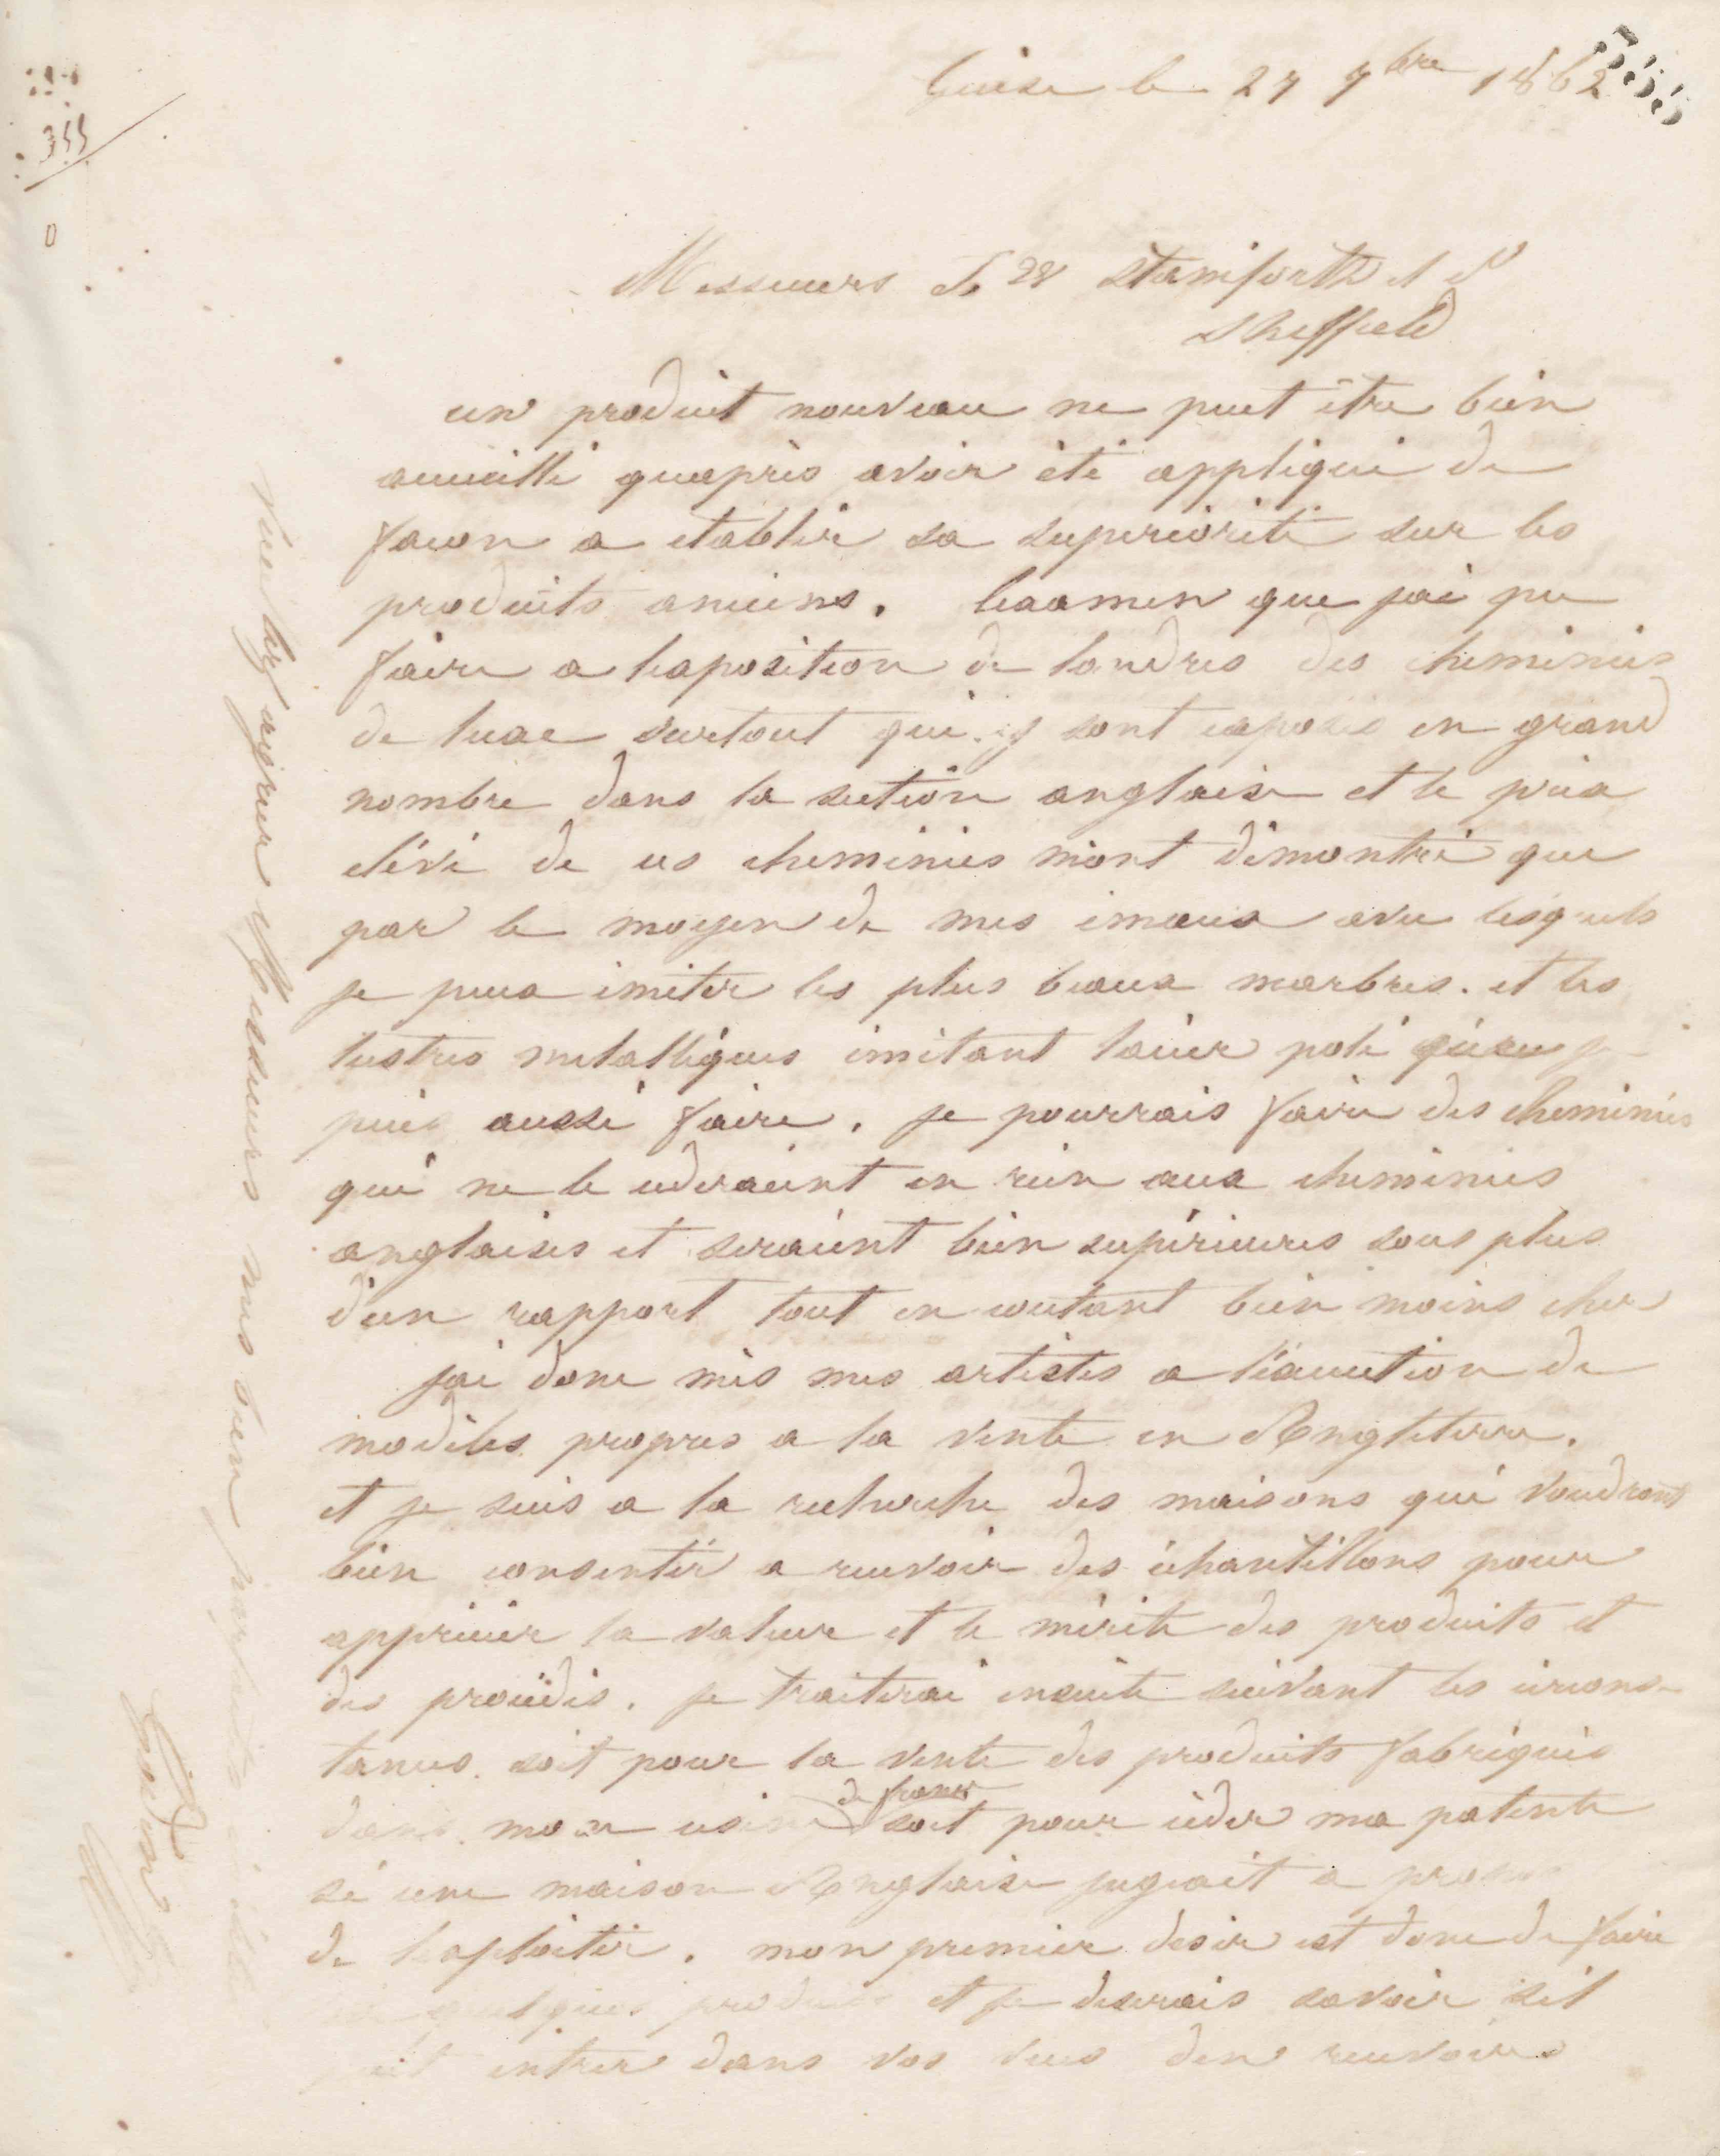 Guise le 27 7bre 1862
355
355
0
Messieurs Staniforth et
Sheffield
un produit nouveau ne peut être bien
accueilli quaprès avoir été appliqué de
facon a etablir sa superiorité sur les
produits anciens. lexamen que jai pu
faire a lexposition de londres des cheminées
de luxe surtout qui y sont exposées en grand
nombre dans la section anglaise et le prix
élévé de ces cheminées mont démontré que
par le moyen de mes émaux avec lesquels
je peux imiter les plus beaux marbres. et les
lustres metalliques imitant lacier poli que je
puis aussi faire. je pourrais faire des cheminées
qui ne le cèderaient en rien aux cheminées
anglaises et seraient bien supérieures sous plus
dun rapport tout en coutant bien moins cher
jai donc mis mes artistes a léxécution de
modèles propres a la vente en Angleterre.
et je suis a la recherche des maisons qui voudront
bien consentir a recevoir des échantillons pour
apprécier la valeur et le mérite des produits et
des procédés. je traiterai ensuite suivant les circons-
tances. soit pour la vente des produits fabriqués
dans mon usine de france soit pour céder ma patente
si une maison Anglaise jugeait a propos
de lexploiter. mon premier desir est donc de faire
quelques produits et je desirais savoir sil
peut entrer dans vos vues den recevoir
Veuillez agréer Messieurs mes bien parfaites
Godin